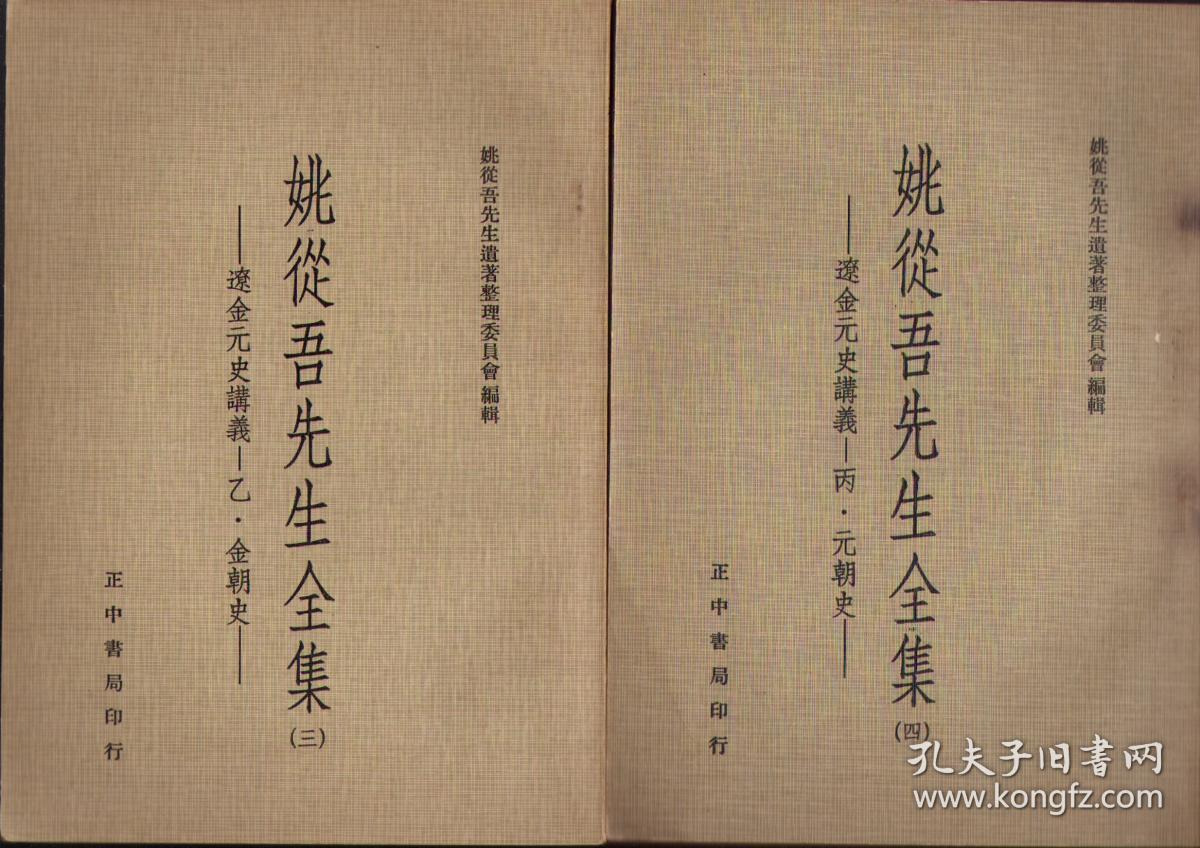 姚從吾先生遺著整理委員會 編輯
姚從吾先生全集(三)
——遼金元史講義—乙·金朝史——
正中書局印行
姚從吾先生遺著整理委員會 編輯
姚從吾先生全集(四)
——遼金元史講義—丙·元朝史——
正中書局印行
孔夫子旧书网
www.kongfz.com